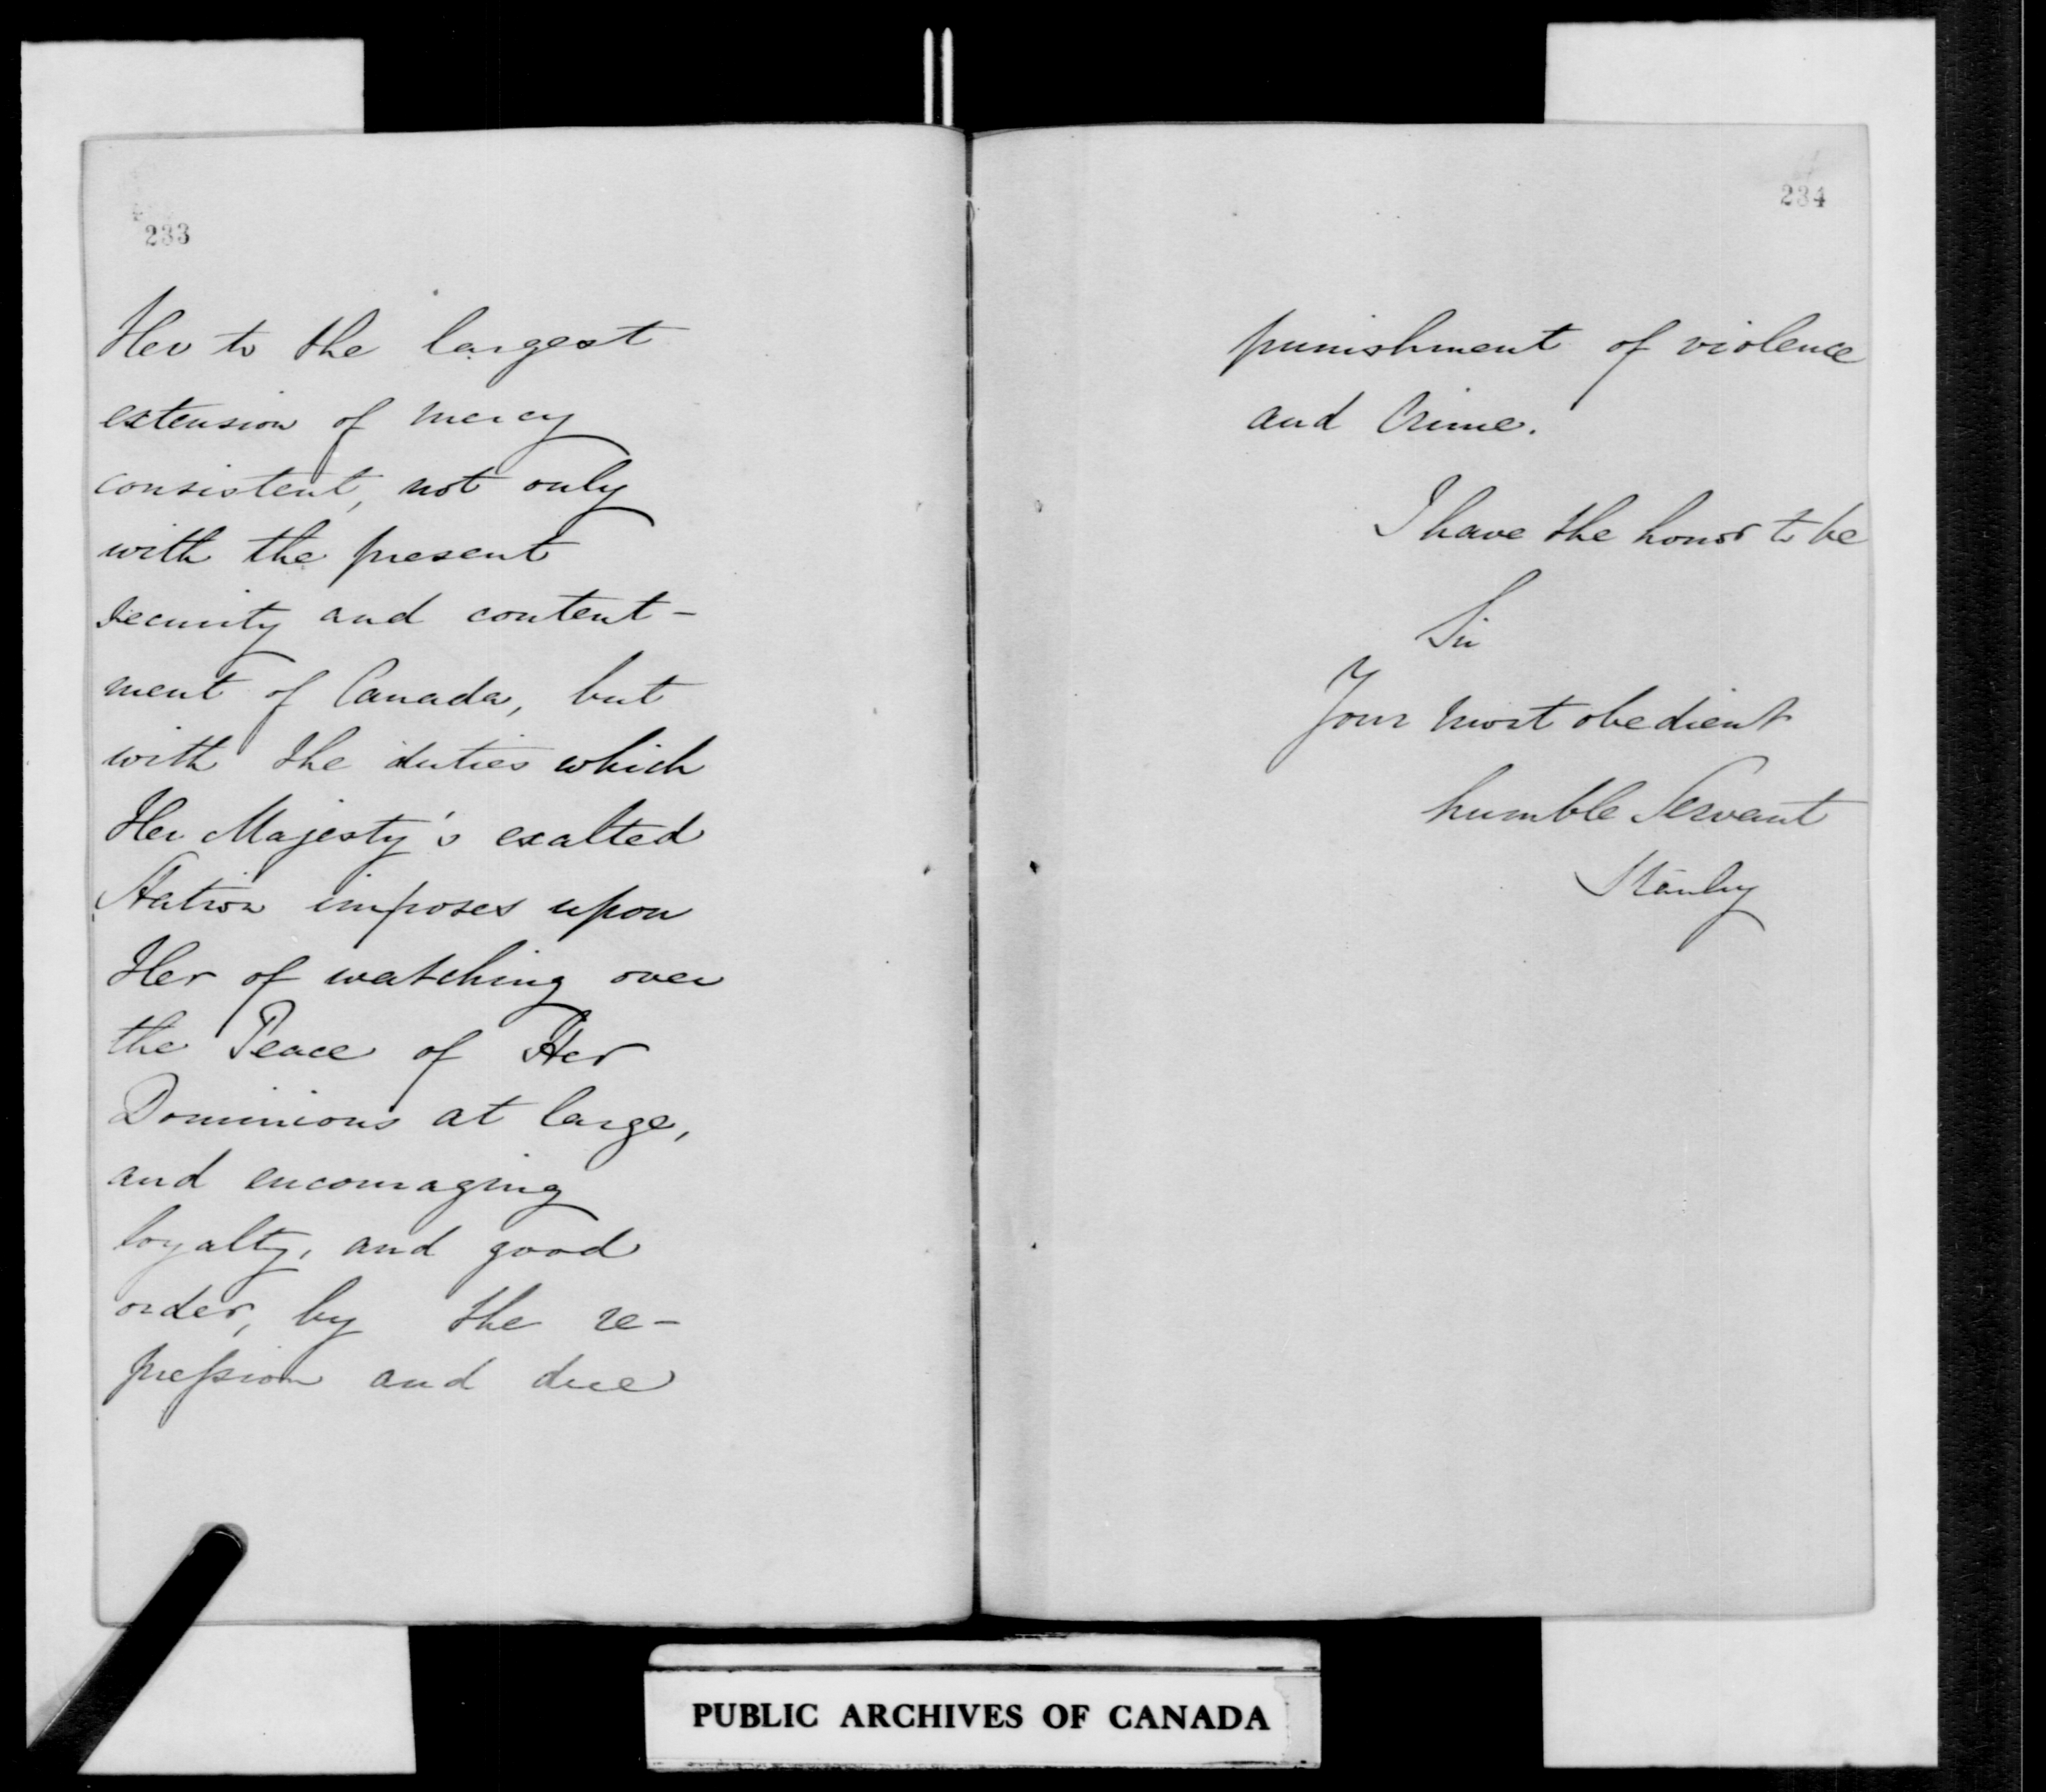 233
Her to the largest
extension of mercy
consistent, not only
with the present
security and content-
ment of Canada, but
with the duties which
Her Majesty's exalted
Station imposes upon
Her of watching over
the Peace of Her
Dominions at large,
and encouraging
loyalty, and good
order, by the re-
pression and due
234
punishment of violence
and Crime.
I have the honor to be
Sir
Your most obedient
humble Servant
Stanley
PUBLIC ARCHIVES OF CANADA